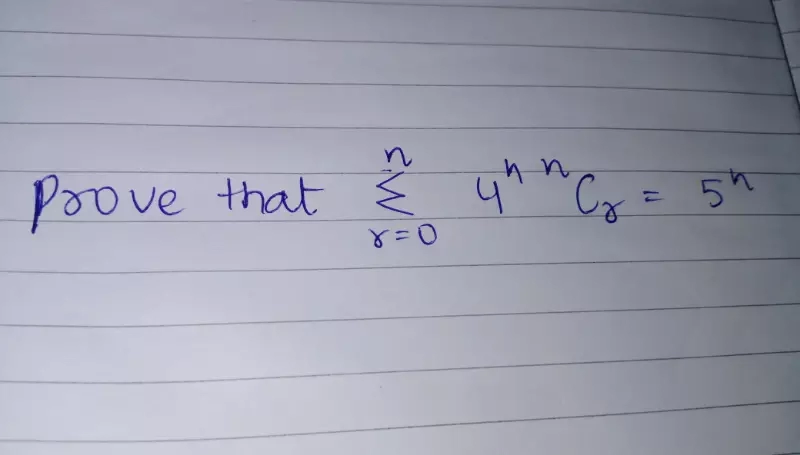 Prove that $\sum_{r=0}^{n} 4^{n} \, {}^{n}C_{r} = 5^{n}$